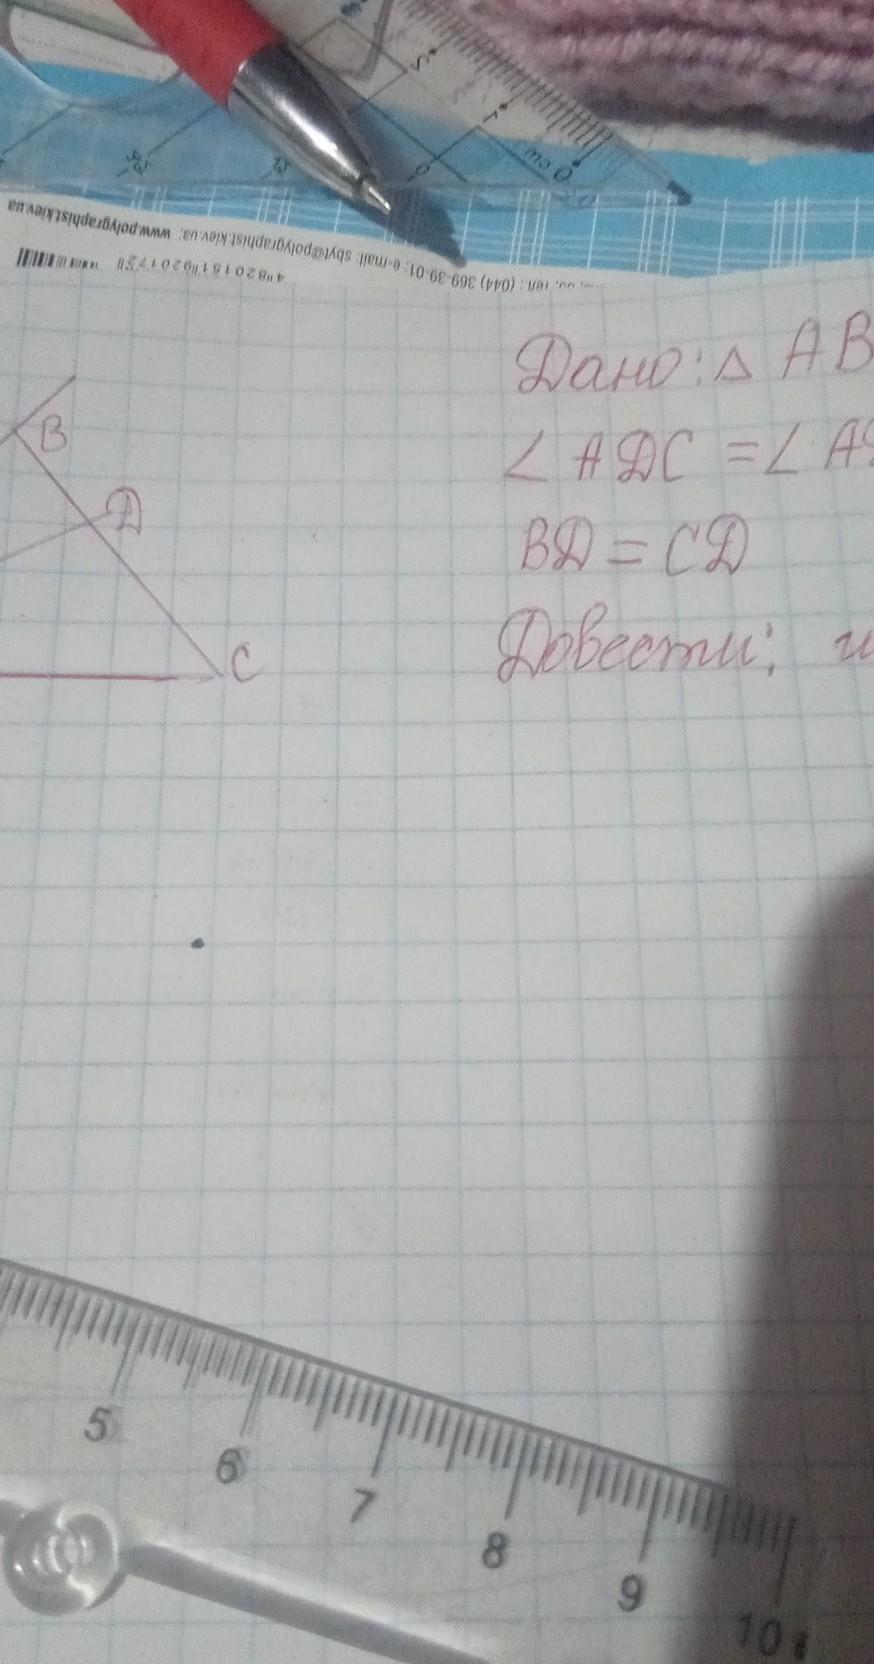 4"820151"920172"
тел.: (044) 369-39-01; e-mail: sbyt@polygraphist.kiev.ua; www.polygraphist.kiev.ua
Дано: △ AB
∠ ADC = ∠ A
BD = CD
Довести:
B
D
C
5 6 7 8 9 10